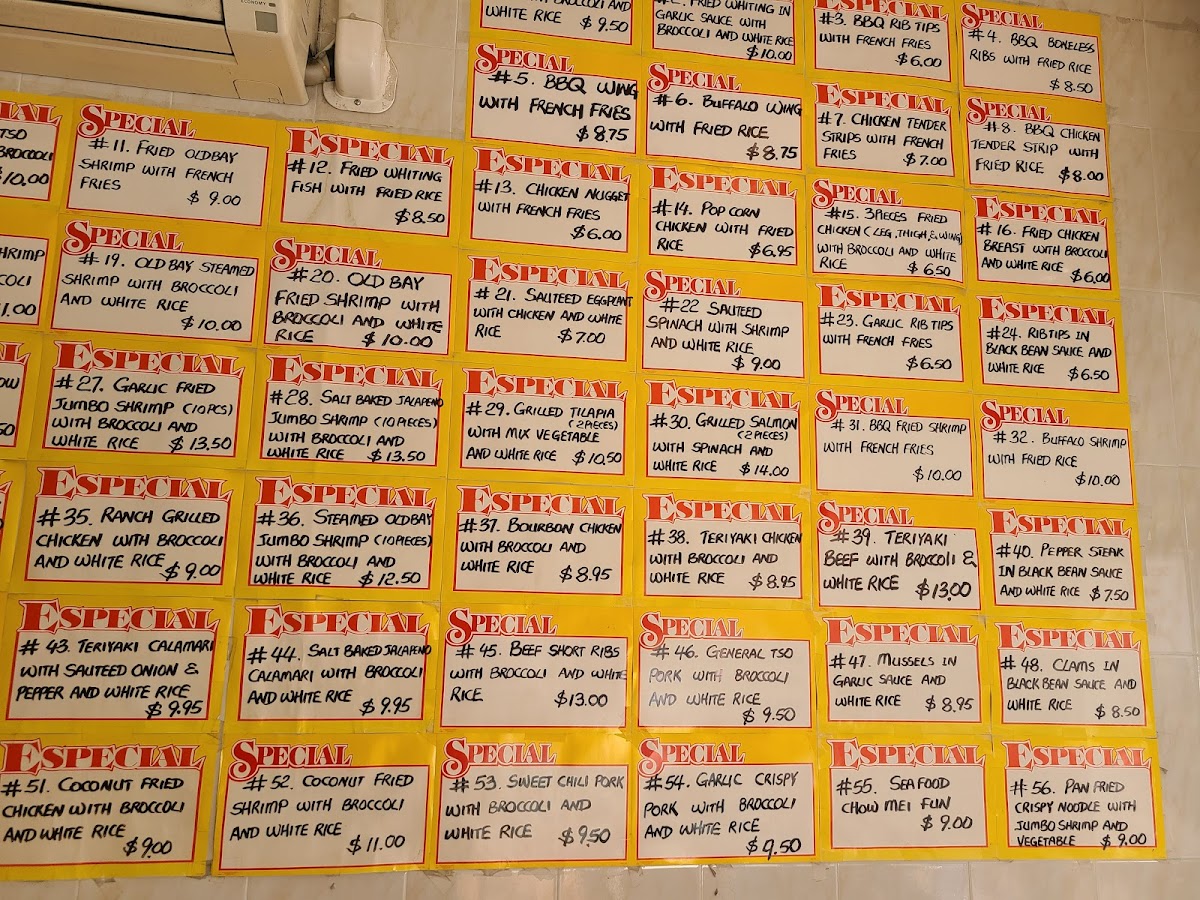 ECONOMY
BROCCOLI AND
WHITE RICE $9.50
FRIED WHITING IN
GARLIC SAUCE WITH
BROCCOLI AND WHITE RICE
$10.00
ESPECIAL
#3. BBQ RIB TIPS
WITH FRENCH FRIES
$6.00
SPECIAL
#4. BBQ BONELESS
RIBS WITH FRIED RICE
$8.50
SPECIAL
#5. BBQ WING
WITH FRENCH FRIES
$8.75
SPECIAL
#6. BUFFALO WING
WITH FRIED RICE
$8.75
ESPECIAL
#7. CHICKEN TENDER
STRIPS WITH FRENCH
FRIES $7.00
SPECIAL
#8. BBQ CHICKEN
TENDER STRIP WITH
FRIED RICE $8.00
TSO
BROCCOLI
$10.00
SPECIAL
#11. FRIED OLDBAY
SHRIMP WITH FRENCH
FRIES $9.00
ESPECIAL
#12. FRIED WHITING
FISH WITH FRIED RICE
$8.50
ESPECIAL
#13. CHICKEN NUGGET
WITH FRENCH FRIES
$6.00
ESPECIAL
#14. POP CORN
CHICKEN WITH FRIED
RICE $6.95
SPECIAL
#15. 3PIECES FRIED
CHICKEN (LEG, THIGH, & WING)
WITH BROCCOLI AND WHITE
RICE $6.50
ESPECIAL
#16. FRIED CHICKEN
BREAST WITH BROCCOLI
AND WHITE RICE $6.00
SHRIMP
SPECIAL
#19. OLD BAY STEAMED
SHRIMP WITH BROCCOLI
AND WHITE RICE
$10.00
SPECIAL
#20. OLD BAY
FRIED SHRIMP WITH
BROCCOLI AND WHITE
RICE $10.00
ESPECIAL
#21. SAUTEED EGGPLANT
WITH CHICKEN AND WHITE
RICE $7.00
SPECIAL
#22 SAUTEED
SPINACH WITH SHRIMP
AND WHITE RICE
$9.00
ESPECIAL
#23. GARLIC RIB TIPS
WITH FRENCH FRIES
$6.50
ESPECIAL
#24. RIB TIPS IN
BLACK BEAN SAUCE AND
WHITE RICE $6.50
ESPECIAL
#27. GARLIC FRIED
JUMBO SHRIMP (10PCS)
WITH BROCCOLI AND
WHITE RICE $13.50
ESPECIAL
#28. SALT BAKED JALAPENO
JUMBO SHRIMP (10PIECES)
WITH BROCCOLI AND
WHITE RICE $13.50
ESPECIAL
#29. GRILLED TILAPIA
(2PIECES)
WITH MIX VEGETABLE
AND WHITE RICE $10.50
ESPECIAL
#30. GRILLED SALMON
(2PIECES)
WITH SPINACH AND
WHITE RICE $14.00
SPECIAL
#31. BBQ FRIED SHRIMP
WITH FRENCH FRIES
$10.00
SPECIAL
#32. BUFFALO SHRIMP
WITH FRIED RICE
$10.00
ESPECIAL
#35. RANCH GRILLED
CHICKEN WITH BROCCOLI
AND WHITE RICE $9.00
ESPECIAL
#36. STEAMED OLDBAY
JUMBO SHRIMP (10PIECES)
WITH BROCCOLI AND
WHITE RICE $12.50
ESPECIAL
#37. BOURBON CHICKEN
WITH BROCCOLI AND
WHITE RICE $8.95
ESPECIAL
#38. TERIYAKI CHICKEN
WITH BROCCOLI AND
WHITE RICE $8.95
SPECIAL
#39. TERIYAKI
BEEF WITH BROCCOLI &
WHITE RICE $13.00
ESPECIAL
#40. PEPPER STEAK
IN BLACK BEAN SAUCE
AND WHITE RICE $7.50
ESPECIAL
#43. TERIYAKI CALAMARI
WITH SAUTEED ONION &
PEPPER AND WHITE RICE
$9.95
ESPECIAL
#44. SALT BAKED JALAPENO
CALAMARI WITH BROCCOLI
AND WHITE RICE $9.95
SPECIAL
#45. BEEF SHORT RIBS
WITH BROCCOLI AND WHITE
RICE $13.00
SPECIAL
#46. GENERAL TSO
PORK WITH BROCCOLI
AND WHITE RICE
$9.50
ESPECIAL
#47. MUSSELS IN
GARLIC SAUCE AND
WHITE RICE $8.95
ESPECIAL
#48. CLAMS IN
BLACK BEAN SAUCE AND
WHITE RICE $8.50
ESPECIAL
#51. COCONUT FRIED
CHICKEN WITH BROCCOLI
AND WHITE RICE
$9.00
SPECIAL
#52. COCONUT FRIED
SHRIMP WITH BROCCOLI
AND WHITE RICE
$11.00
SPECIAL
#53. SWEET CHILI PORK
WITH BROCCOLI AND
WHITE RICE $9.50
SPECIAL
#54. GARLIC CRISPY
PORK WITH BROCCOLI
AND WHITE RICE
$9.50
ESPECIAL
#55. SEAFOOD
CHOW MEI FUN
$9.00
ESPECIAL
#56. PAN FRIED
CRISPY NOODLE WITH
JUMBO SHRIMP AND
VEGETABLE $9.00